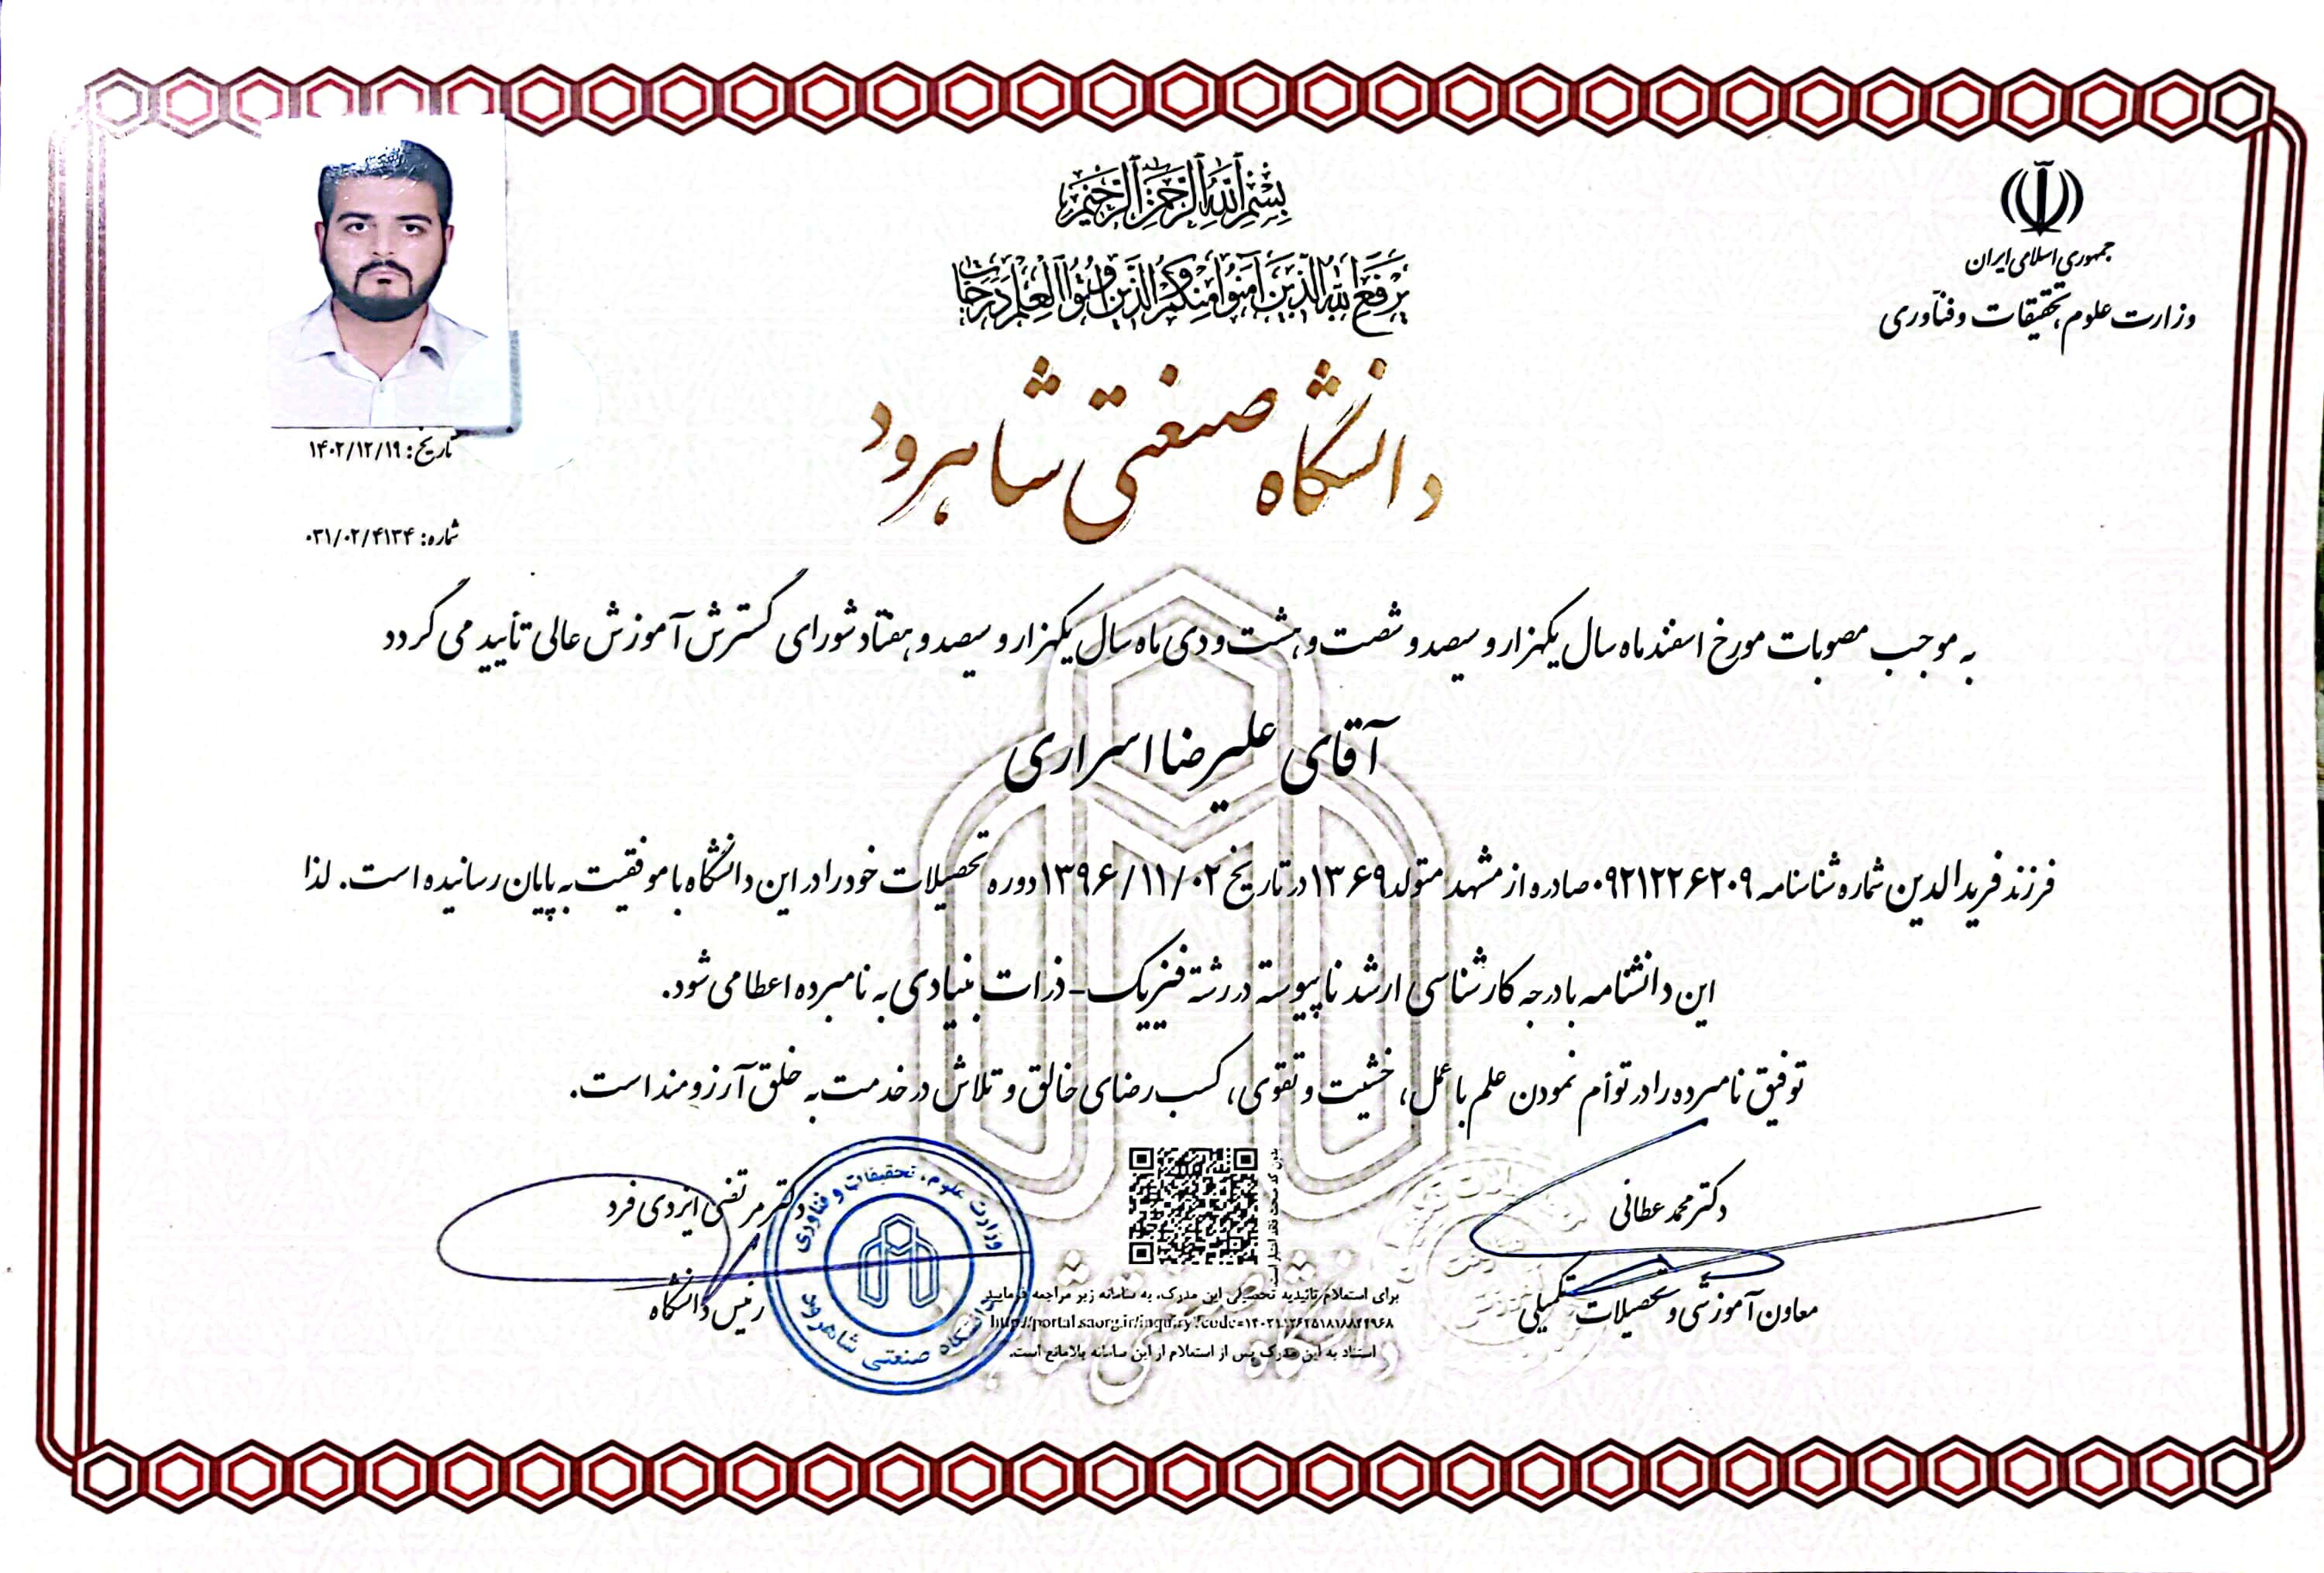 جمهوری اسلامی ایران
وزارت علوم، تحقیقات و فنّاوری
بِسْمِ ٱللَّهِ ٱلرَّحْمَٰنِ ٱلرَّحِيمِ
يَرْفَعِ اللَّهُ الَّذِينَ آمَنُوا مِنْكُمْ وَالَّذِينَ أُوتُوا الْعِلْمَ دَرَجَاتٍ
دانشگاه صنعتی شاهرود
تاریخ: ۱۴۰۲/۱۲/۱۹
شماره: ۰۳۱/۰۲/۴۱۳۴
به موجب مصوبات مورخ اسفند ماه سال یکهزار و سیصد و شصت و هشت و دی ماه سال یکهزار و سیصد و هفتاد شورای گسترش آموزش عالی تأیید می گردد
آقای علیرضا اسراری
فرزند فریدالدین شماره شناسنامه ۰۹۲۱۲۲۶۲۰۹ صادره از مشهد متولد ۱۳۶۹ در تاریخ ۱۳۹۶/۱۱/۰۲ دوره تحصیلات خود را در این دانشگاه با موفقیت به پایان رسانیده است. لذا
این دانشنامه با درجه کارشناسی ارشد ناپیوسته در رشته فیزیک - ذرات بنیادی به نامبرده اعطا می شود.
توفیق نامبرده را در توأم نمودن علم با عمل، خشیت و تقوی، کسب رضای خالق و تلاش در خدمت به خلق آرزومند است.
دکتر محمد عطائی
معاون آموزشی و تحصیلات تکمیلی
بدون کد صحت فاقد اعتبار است.
برای استعلام تائیدیه تحصیلی این مدرک، به سامانه زیر مراجعه فرمایید
http://portal.saorg.ir/inquiry?code=
استناد به این مدرک پس از استعلام از این سامانه بلامانع است.
دکتر مرتضی ایزدی فرد
رئیس دانشگاه
وزارت علوم، تحقیقات و فناوری
دانشگاه صنعتی شاهرود